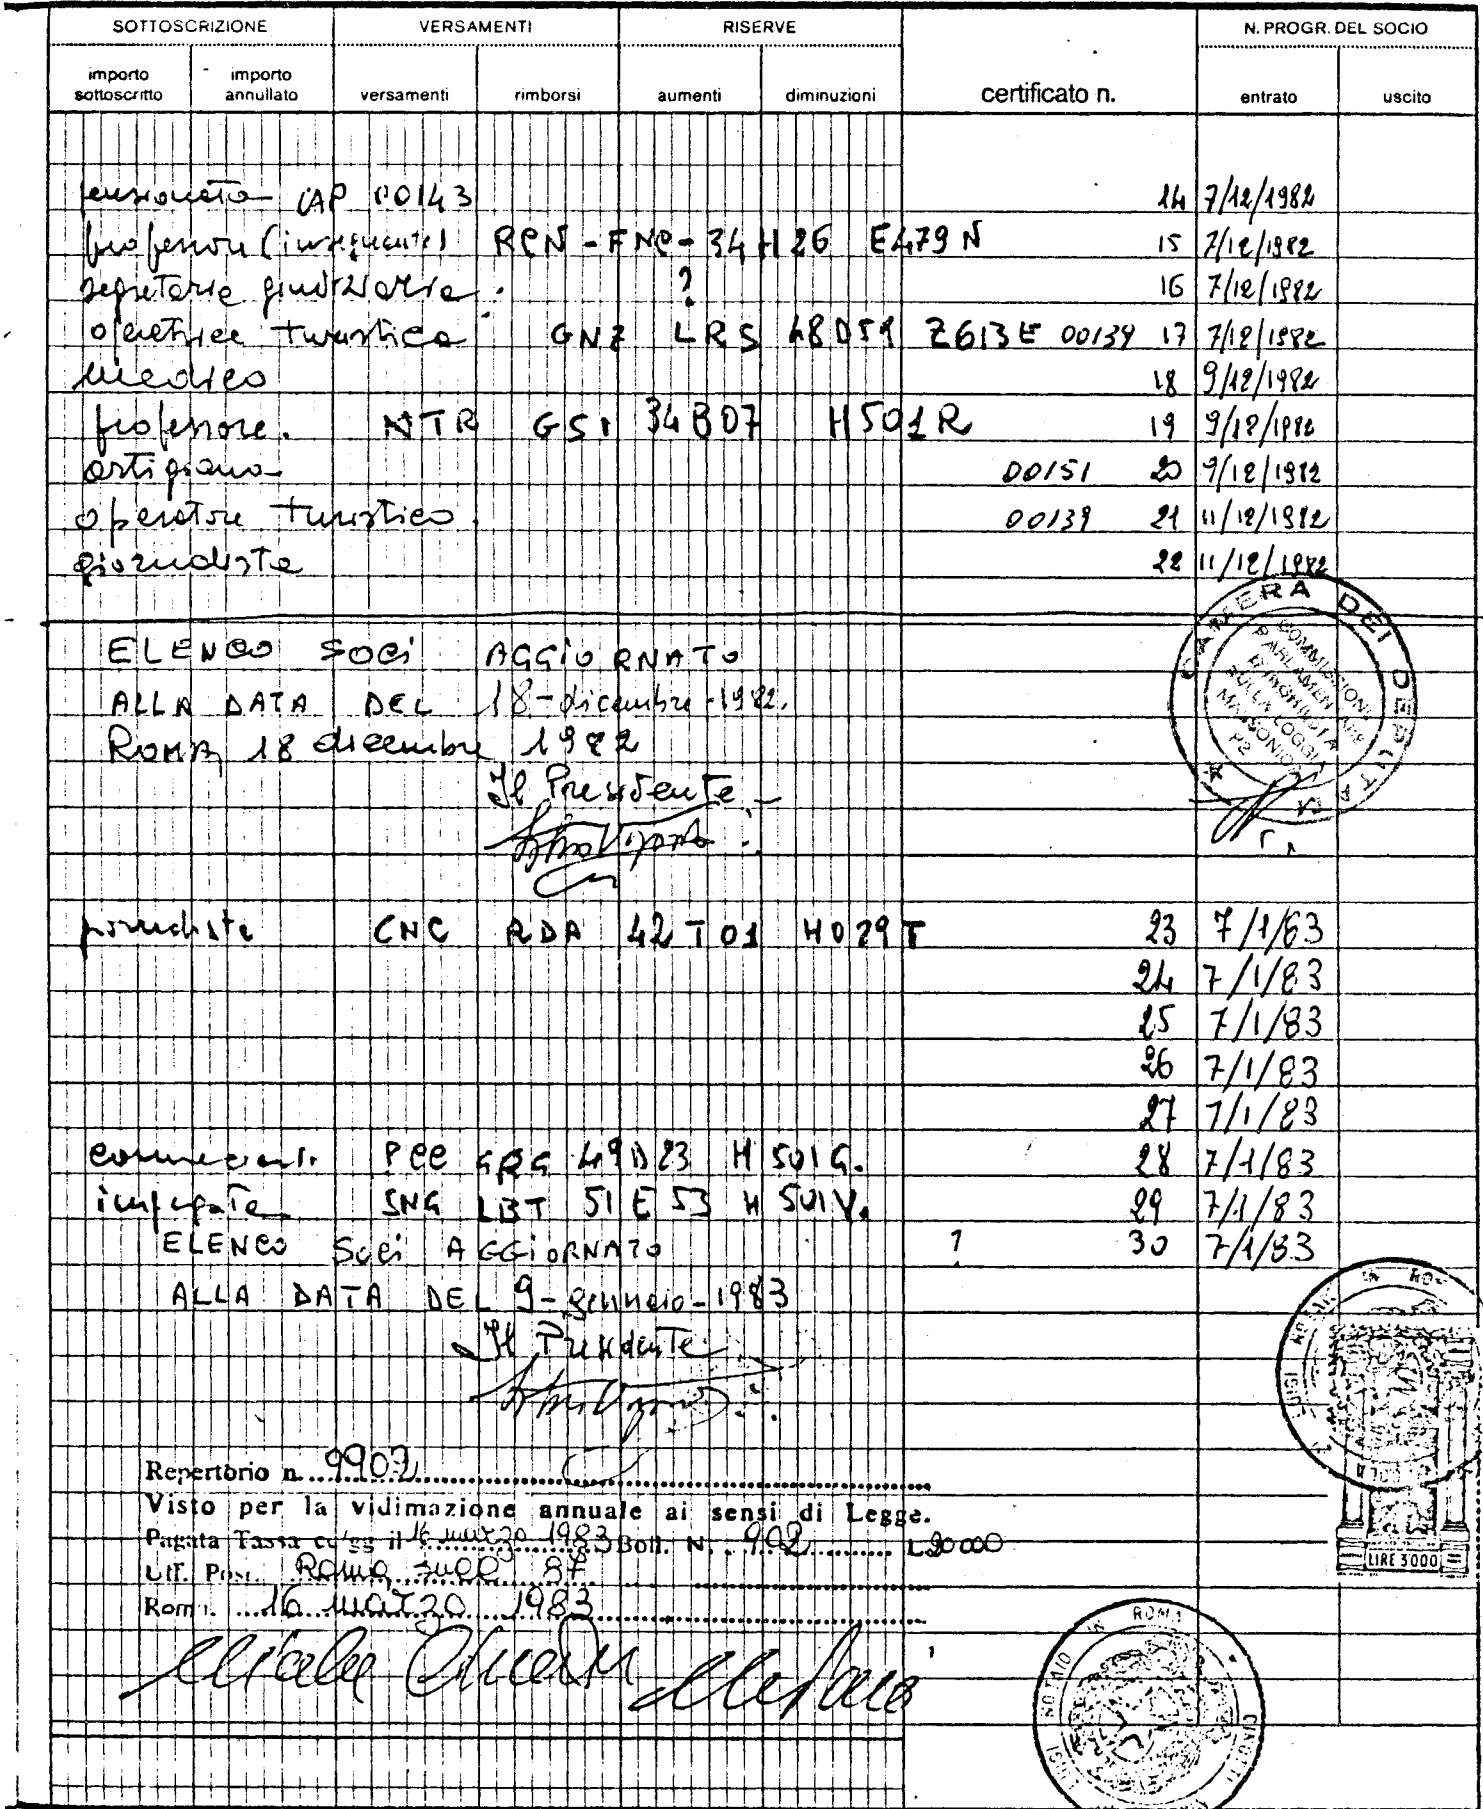 SOTTOSCRIZIONE VERSAMENTI RISERVE N. PROGR. DEL SOCIO
importo sottoscritto importo annullato versamenti rimborsi aumenti diminuzioni certificato n. entrato uscito
pensionato CAP 00143 14 7/12/1982
professore (insegnante) RCN-FNC-34H26 E479N 15 7/12/1982
segretaria giudiziaria. ? 16 7/12/1982
operatrice turistica GNZ LRS 48D59 Z613E 00139 17 7/12/1982
medico 18 9/12/1982
professore. NTR GSI 34B07 H501R 19 9/12/1982
artigiano 00151 20 9/12/1982
operatore turistico. 00139 21 11/12/1982
giornalista 22 11/12/1982
ELENCO SOCI AGGIORNATO
ALLA DATA DEL 18-dicembre-1982.
ROMA, 18 dicembre 1982
Il Presidente
CAMERA DEI DEPUTATI
COMMISSIONE
PARLAMENTARE
D'INCHIESTA
SULLA LOGGIA
MASSONICA
P2
giornalista CNC RDA 42T01 H029T 23 7/1/83
24 7/1/83
25 7/1/83
26 7/1/83
27 7/1/83
commerciante PCC GRG 49D23 H501G. 28 7/1/83
impiegata SNG LBT 51E53 H501V. 29 7/1/83
ELENCO SOCI AGGIORNATO ? 30 7/1/83
ALLA DATA DEL 9-gennaio-1983
Il Presidente
Repertorio n. 9907
Visto per la vidimazione annuale ai sensi di Legge.
Pagata Tassa cc/gg il 16 marzo 1983 Boll. N. 902 L.20000
Uff. Post. Roma succ 87
Roma. 16 marzo 1983
LIRE 3000
NOTAIO IN ROMA